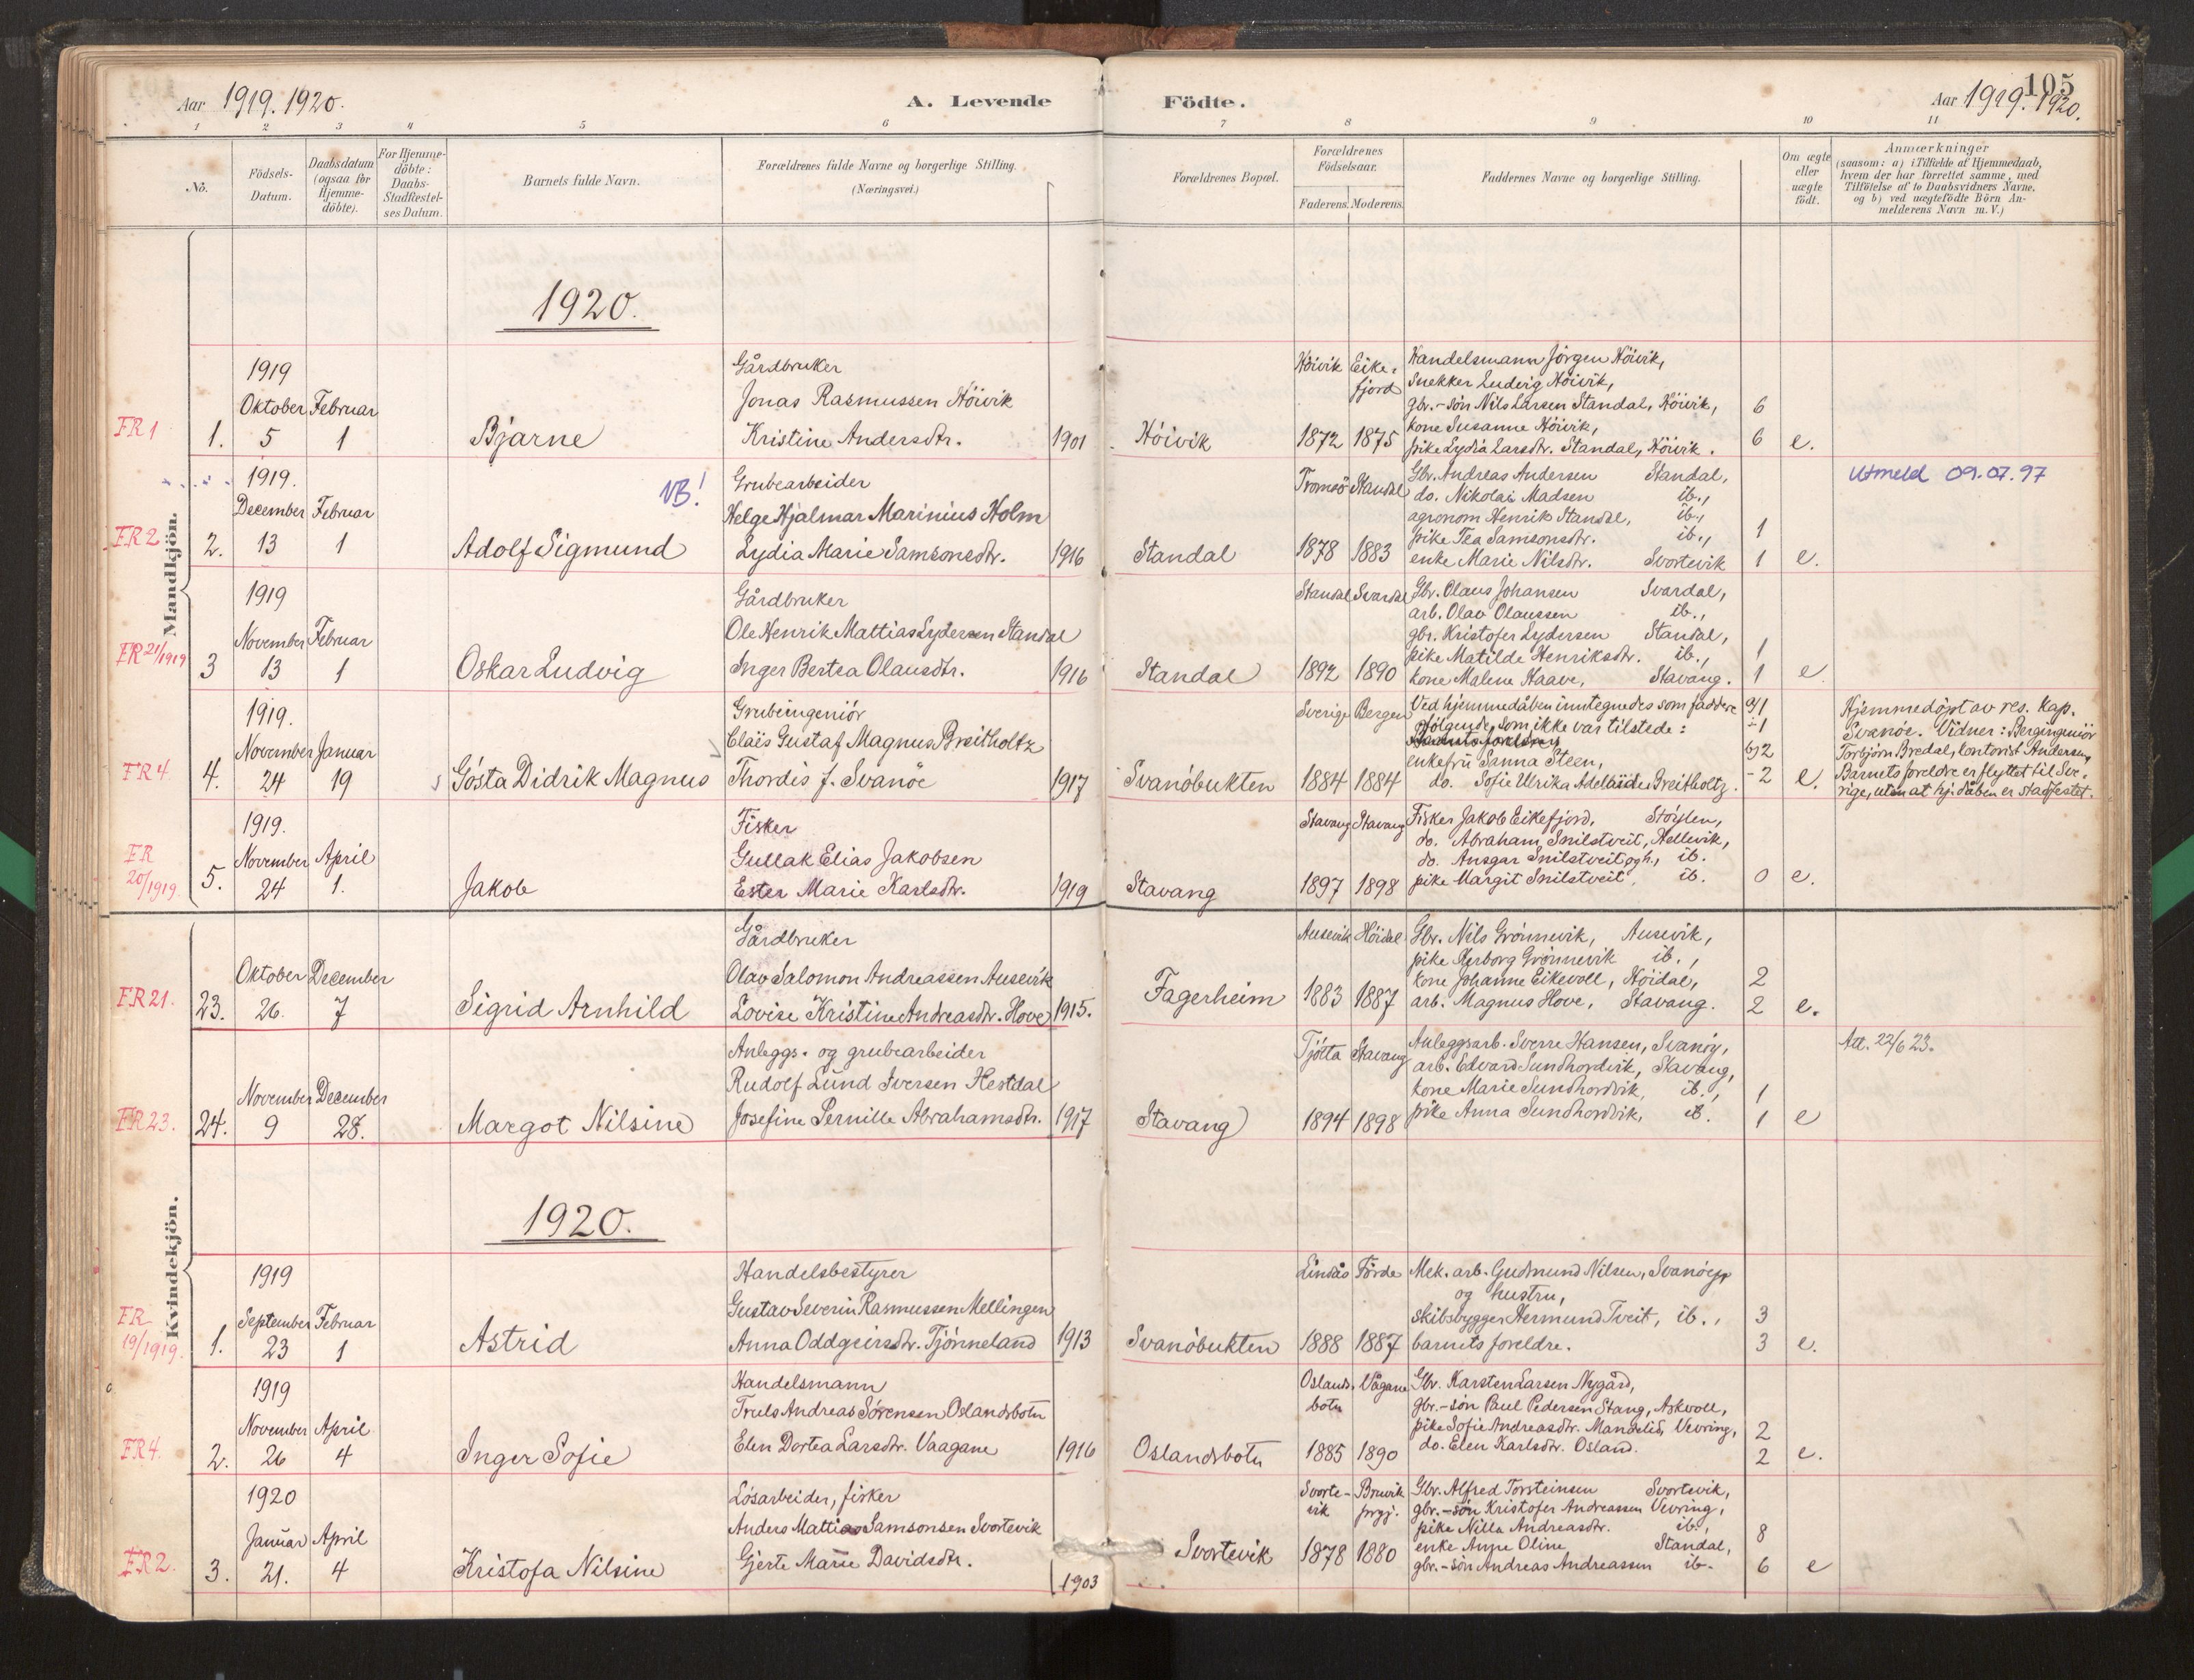 Aar 1919. 1920.
A. Levende
Födte.
105
Aar 1919. 1920.
1 2 3 4 5 6 7 8 9 10 11
No.
Födsels-
Datum.
Daabsdatum
(ogsaa for
Hjemme-
döbte).
For Hjemme-
döbte:
Daabs-
Stadfæstel-
ses Datum.
Barnets fulde Navn.
Forældrenes fulde Navne og borgerlige Stilling.
(Næringsvei.)
Forældrenes Bopæl.
Forældrenes
Födselsaar.
Faderens. Moderens.
Faddernes Navne og borgerlige Stilling.
Om ægte
eller
uægte
födt.
Anmærkninger
(saasom: a) i Tilfælde af Hjemmedaab,
hvem der har forrettet samme, med
Tilföielse af to Daabsvidners Navne,
og b) ved uægtefödte Börn An-
melderens Navn m. V.)
Mandkjön.
1920.
FR 1
1.
1919
Oktober
5
Februar
1
Bjarne
Gårdbruker
Jonas Rasmussen Höivik
Kristine Andersdtr.
1901
Höivik
Höivik
1872
Eike-
fjord
1875
Handelsmann Jörgen Höivik,
Snekker Ludvig Höivik,
gbr.-sön Nils Larsen Standal, Höivik,
kone Susanne Höivik,
pike Lydia Larsdtr. Standal, Höivik.
6
6
e.
FR 2
2.
1919.
December
13
Februar
1
Adolf Sigmund
NB!
Grubearbeider
Helge Hjalmar Marinius Holm
Lydia Marie Samsonsdtr.
1916
Standal
Tromsö
1878
Standal
1883
Gbr. Andreas Andersen Standal,
do. Nikolai Madsen ib.,
agronom Henrik Standal, ib.,
pike Tea Samsonsdtr. ib.,
enke Marie Nilsdtr. Svortevik
1
1
e.
Utmeld 09.07.97
FR 21/1919
3
1919
November
13
Februar
1
Oskar Ludvig
Gårdbruker
Ole Henrik Mattias Lydersen Standal
Inger Bertea Olausdtr.
1916
Standal
Standal
1892
Svardal
1890
Gbr. Olaus Johansen Svardal,
arb. Olav Olaussen ib.,
gbr. Kristofer Lydersen Standal,
pike Matilde Henriksdtr. ib.,
kone Malene Haave, Stavang.
1
1
e.
FR 4.
4.
1919.
November
24
Januar
19
Gösta Didrik Magnus
Grubeingeniör
Claës Gustaf Magnus Breitholtz
Thordis f. Svanöe
1917
Svanöbukten
Sverige
1884
Bergen
1884
Ved hjemmedåben inntegnedes som faddere
fölgende, som ikke var tilstede:
enkefru Sanna Steen,
do. Sofie Ulrika Adelaide Breitholtz.
a) 1
÷ 1
b) 2
- 2
e.
Hjemmedöpt av res. kap.
Svanöe. Vidner: Bergingeniör
Torbjörn Bredal, kontorist Andersen,
Barnets foreldre er flyttet til Sve-
rige, uten at hj. dåben er stadfestet.
FR
20/1919.
5.
1919.
November
24
April
1.
Jakob
Fisker
Gullak Elias Jakobsen
Ester Marie Karlsdtr.
1919
Stavang
Stavang
1897
Stavang
1898
Fisker Jakob Eikefjord, Stöylen,
do. Abraham Snilstveit, Hellevik,
do. Ansgar Snilstveit ib.
pike Margit Snilstveit, ib.
0
e.
Kvindekjön.
FR 21.
23.
Oktober
26.
December
7
Sigrid Arnhild
Gårdbruker
Olav Salomon Andreassen Ausevik
Lovise Kristine Andreasdtr. Hove
1915.
Fagerheim
Ausevik
1883
Höidal
1887
Gbr. Nils Grönnevik, Ausevik,
pike Herborg Grönnevik ib.,
kone Johanne Eikevoll, Höidal,
arb. Magnus Hove, Stavang.
2
2
e.
FR 23.
24.
November
9
December
28.
Margot Nilsine
Anleggs- og grubearbeider
Rudolf Lund Iversen Hestdal
Josefine Pernille Abrahamsdtr.
1917
Stavang
Tjötta
1894
Stavang
1898
Anleggsarb. Sverre Hansen, Svanöy,
arb. Edvard Sundhordvik, Stavang,
kone Marie Sundhordvik, ib.,
pike Anna Sundhordvik, ib.
1
1
e
Att. 22/6 23.
1920.
FR
19/1919.
1.
1919
September
23
Februar
1
Astrid
Handelsbestyrer
Gustav Severin Rasmussen Mellingen
Anna Oddgeirsdtr. Tjönneland
1913
Svanöbukten
Lindås
1888
Förde
1887
Mek. arb. Gudmund Nilsen, Svanöey
og hustru,
skibsbygger Hermund Tveit, ib.,
barnets foreldre.
3
3
e.
FR 4.
2.
1919
November
26
April
4
Inger Sofie
Handelsmann
Truls Andreas Sörensen Oslandsbotn
Elen Dortea Larsdtr. Vaagane
1916
Oslandsbotn
Oslands-
botn
1885
Vågane
1890
Gbr. Karsten Larsen Nygård,
gbr.-sön Paul Pedersen Stang, Askvoll,
pike Sofie Andreasdtr. Mandelid, Vevring,
do. Elen Karlsdtr. Osland.
2
2
e.
FR 2.
3.
1920
Januar
21.
April
4
Kristofa Nilsine
Lösarbeider, fisker
Anders Mattias Samsonsen Svortevik
Gjerte Marie Davidsdtr.
1903
Svortevik
Svorte-
vik
1878
Bruvik
prgj.
1880
Gbr. Alfred Torsteinsen Svortevik,
gbr.-sön Kristofer Andreassen Vevring,
pike Nilla Andreasdtr. ib.,
enke Anne Oline Standal,
gbr.-sön Andreas Andreassen ib.
8
6
e